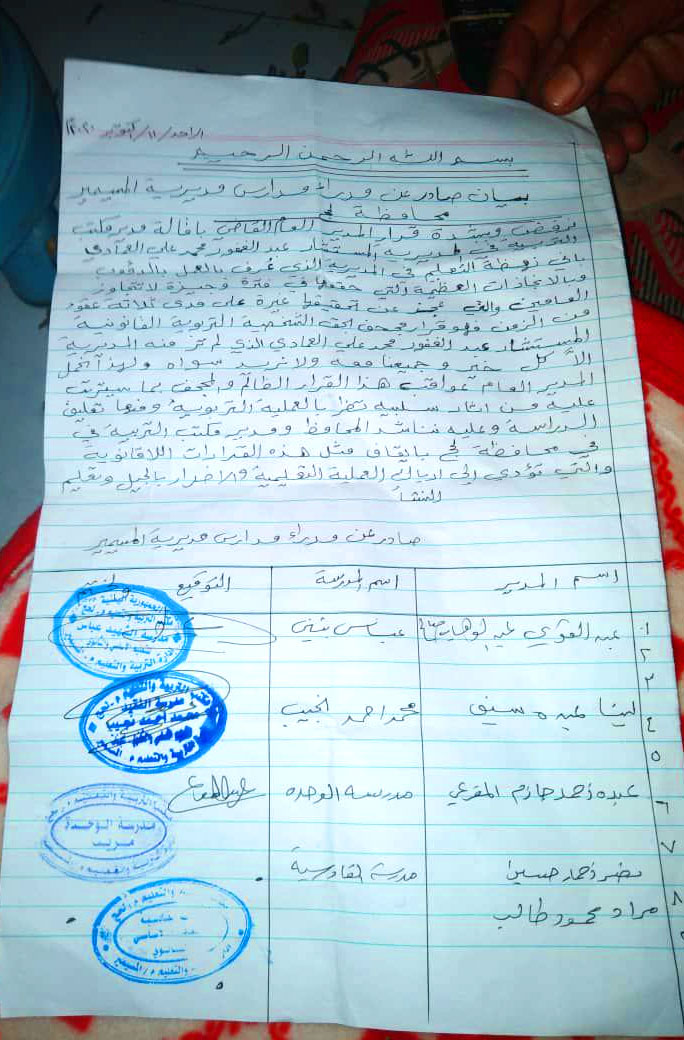 الاحد/١١/ اكتوبر ٢٠٢٠م
بسم الله الرحمن الرحيم
بيان صادر عن مدراء مدارس مديرية المسيمير
محافظة لحج
نرفض وبشدة قرار المدير العام القاضي باقالة مدير مكتب
التربية في المديرية المستشار عبدالغفور محمد علي العمادي
باني نهضة التعليم في المديرية الذي عُرف بالعمل الدؤوب
وبالانجازات العظيمة التي حققها في فترة وجيزة لا تتجاوز
العامين والتي عجز عن تحقيقها غيره على مدى ثلاثة عقود
من الزمن فهو قرار مجحف بحق الشخصية التربوية القانونية
المستشار عبد الغفور محمد علي العمادي الذي لم نر منه المديرية
الا كل خير وجميعنا معه ولا نريد سواه ولهذا نحمل
المدير العام عواقب هذا القرار الظالم والمجحف بما سيترتب
عليه من اثار سلبية تضر بالعملية التربوية ومنها تعليق
الدراسة وعليه نناشد المحافظ ومدير مكتب التربية في
في محافظة لحج بايقاف مثل هذه القرارات اللاقانونية
والتي تؤدي الى ارباك العملية التعليمية والاضرار بالجيل وتعليم
النشئ
صادر عن مدراء مدارس مديرية المسيمير
اسم المدير اسم المدرسة التوقيع الختم
١ عبد القوي عبد الوهاب عباس
٢
٣
٤ لينا عبده سيف محمد احمد نجيب
٥
٦ عبده احمد حازم المقرعي مدرسة الوحده
٧
نصر احمد حسين مدرسة القادسية
٨ مراد محمود طالب
مدرسة الوحدة
مريب
والتعليم م/المسيمير